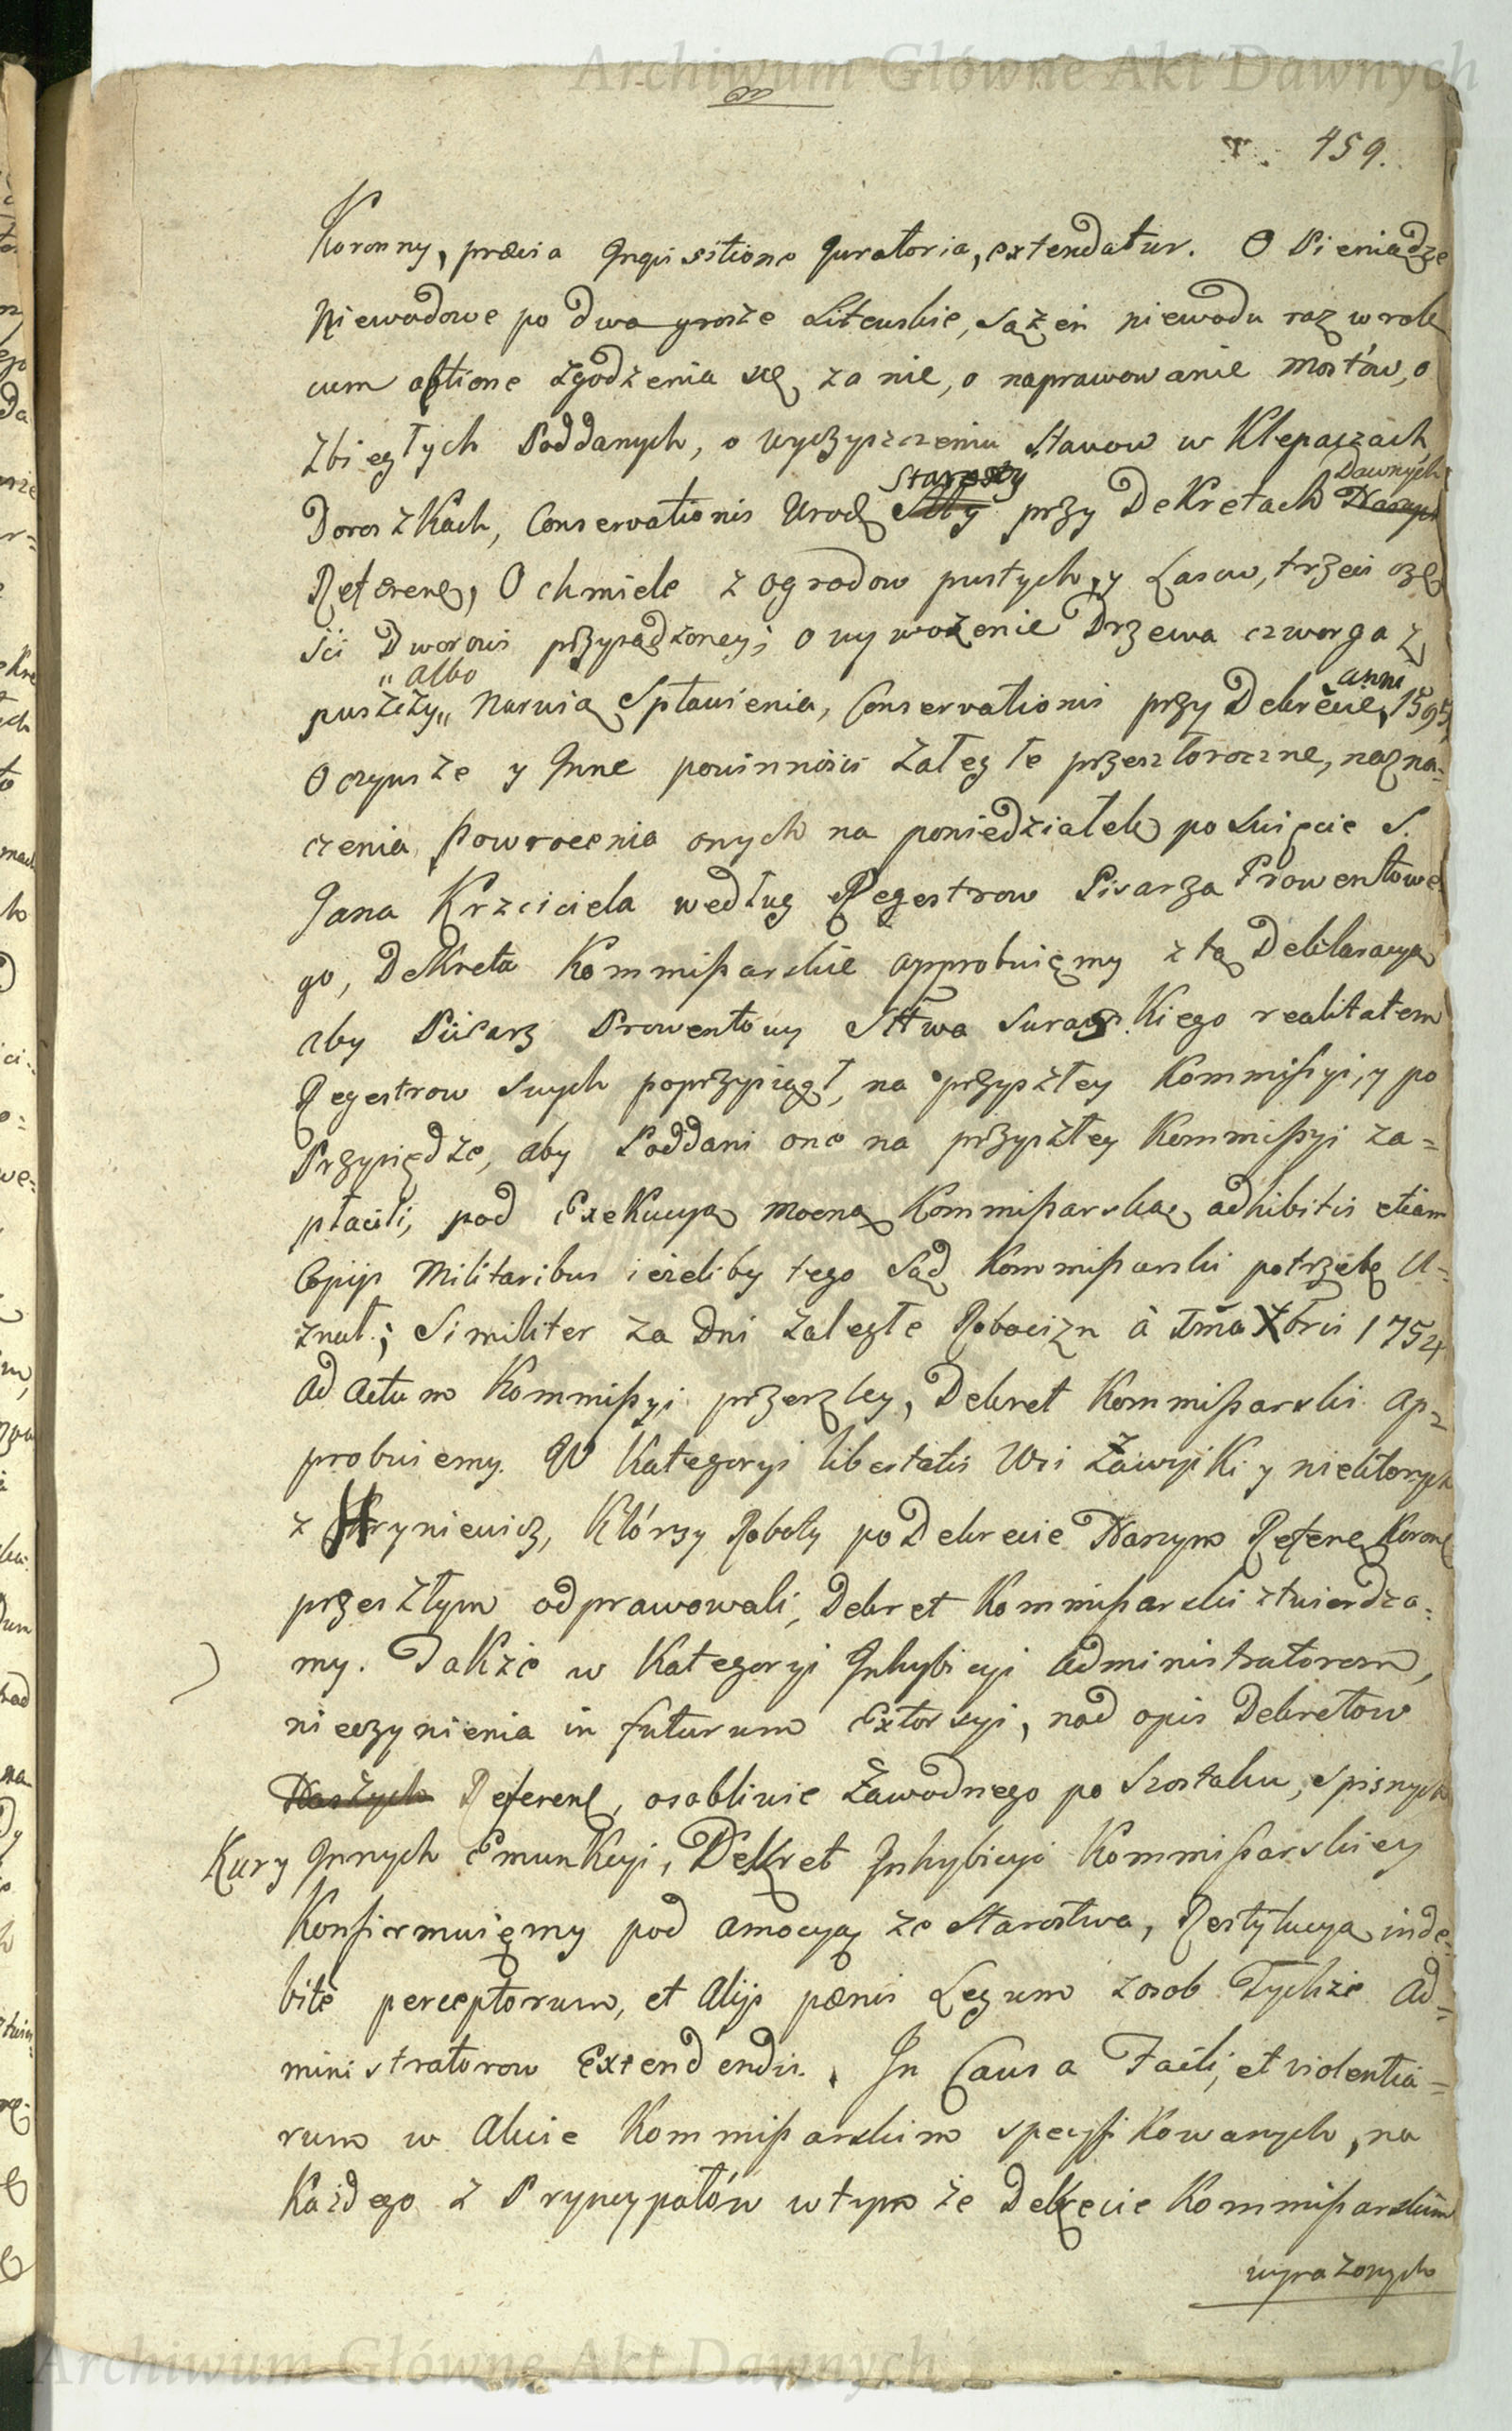 Archiwum Główne Akt Dawnych
459.
Koronny, prævia Inquisitione Juratoria, extendatur. O Pieniądze
Niewodowe po dwa grosze Litewskie, Sążeń niewodu raz w rok
cum optione zgodzenia się za nie, o naprawowanie mostów, o
zbiegłych Poddanych, o wyczyszczeniu stawow w Klepaczach
Doroszkach, Conservationis Urodz Stty Starosty przy Dekretach Naszych Dawnych
Referen, O chmiele z ogrodow pustych, y Lasow, trzeci czę
ści Dworowi przysądzoney; o wywożenie Drzewa czworga z
puszczy „ albo „ Narwią Spławienia, Conservationis przy Dekrecie anni 1595,
O czynsze y Inne powinności zaległe przeszłoroczne, nazna-
czenia Powrocenia onych na poniedziałek po Swięcie S.
Jana Krzciciela według Regestrow Pisarza Prowentowe
go, Dekreta Kommissarskie approbuięmy z tą Deklaracyą
aby Pisarz Prowentowy Sttwa Suraskiego realitatem
Regestrow swych poprzysiągł, na przyszłey Kommissyi, y po
Przysiędze, aby Poddani one na przyszłey Kommissyi za=
płacili, pod Exekucyą mocną Kommissarską adhibitis etiam
Copijs Militaribus ieżeliby tego Sąd Kommissarski potrzebę u=
znał; Similiter za Dni zaległe Robocizn à 1ma Xbris 1754
ad actum Kommissyi przerzley, Dekret Kommissarski ap=
probuiemy. W Kategoryi libertatis Wsi Zawyki y niektorych
z Hryniewicz, Którzy Roboty po Dekrecie Naszym Referen Koron
przeszłym odprawowali, Dekret Kommissarski ztwierdza=
my. Także w Kategoryi Inhybicyi Administratorom,
nieczynienia in futurum Extorsyi, nad opis Dekretow
Naszych Referen, osobliwie Zawodnego po Szostaku, Spisnych
Kury Innych Emunkcyi, Dekret Inhybicyi Kommissarskiey
Konfirmuięmy pod amocyą ze Starostwa, Restytucyą inde-
bitè perceptorum, et Alijs pænis Legum z osob Tychże Ad=
ministratorow Extendendis. In Causa Facti, et violentia=
rum w Akcie Kommissarskim specyfikowanych, na
Każdego z Pryncypałów w tymże Dekrecie Kommissarskim
wyrażonych
Archiwum Główne Akt Dawnych